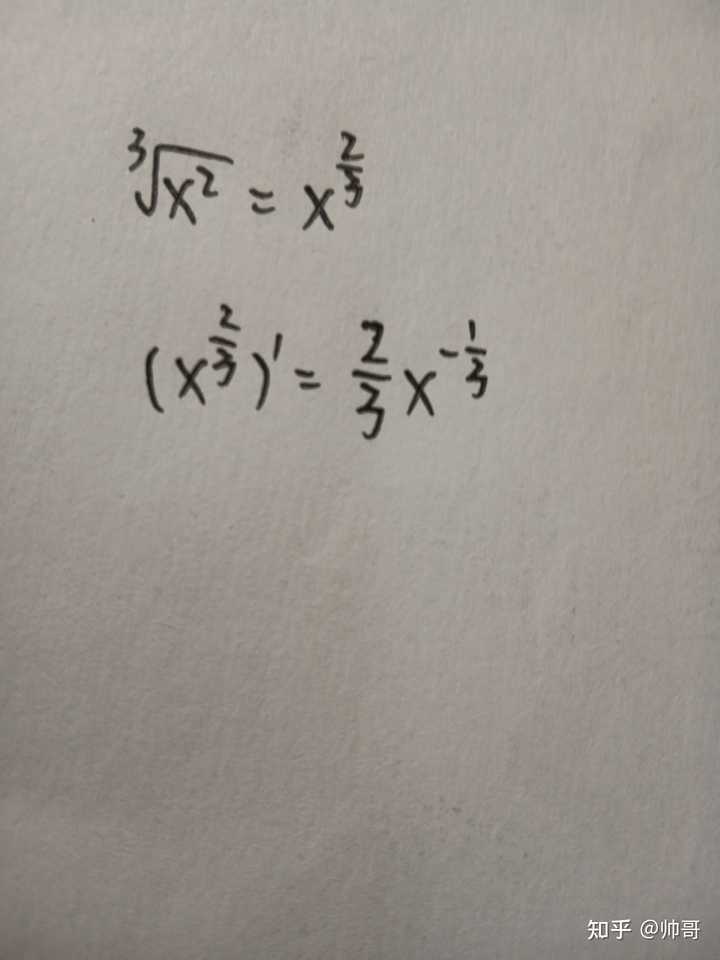 ∛x² = x^(2/3)
(x^(2/3))' = 2/3 x^(-1/3)
知乎 @帅哥